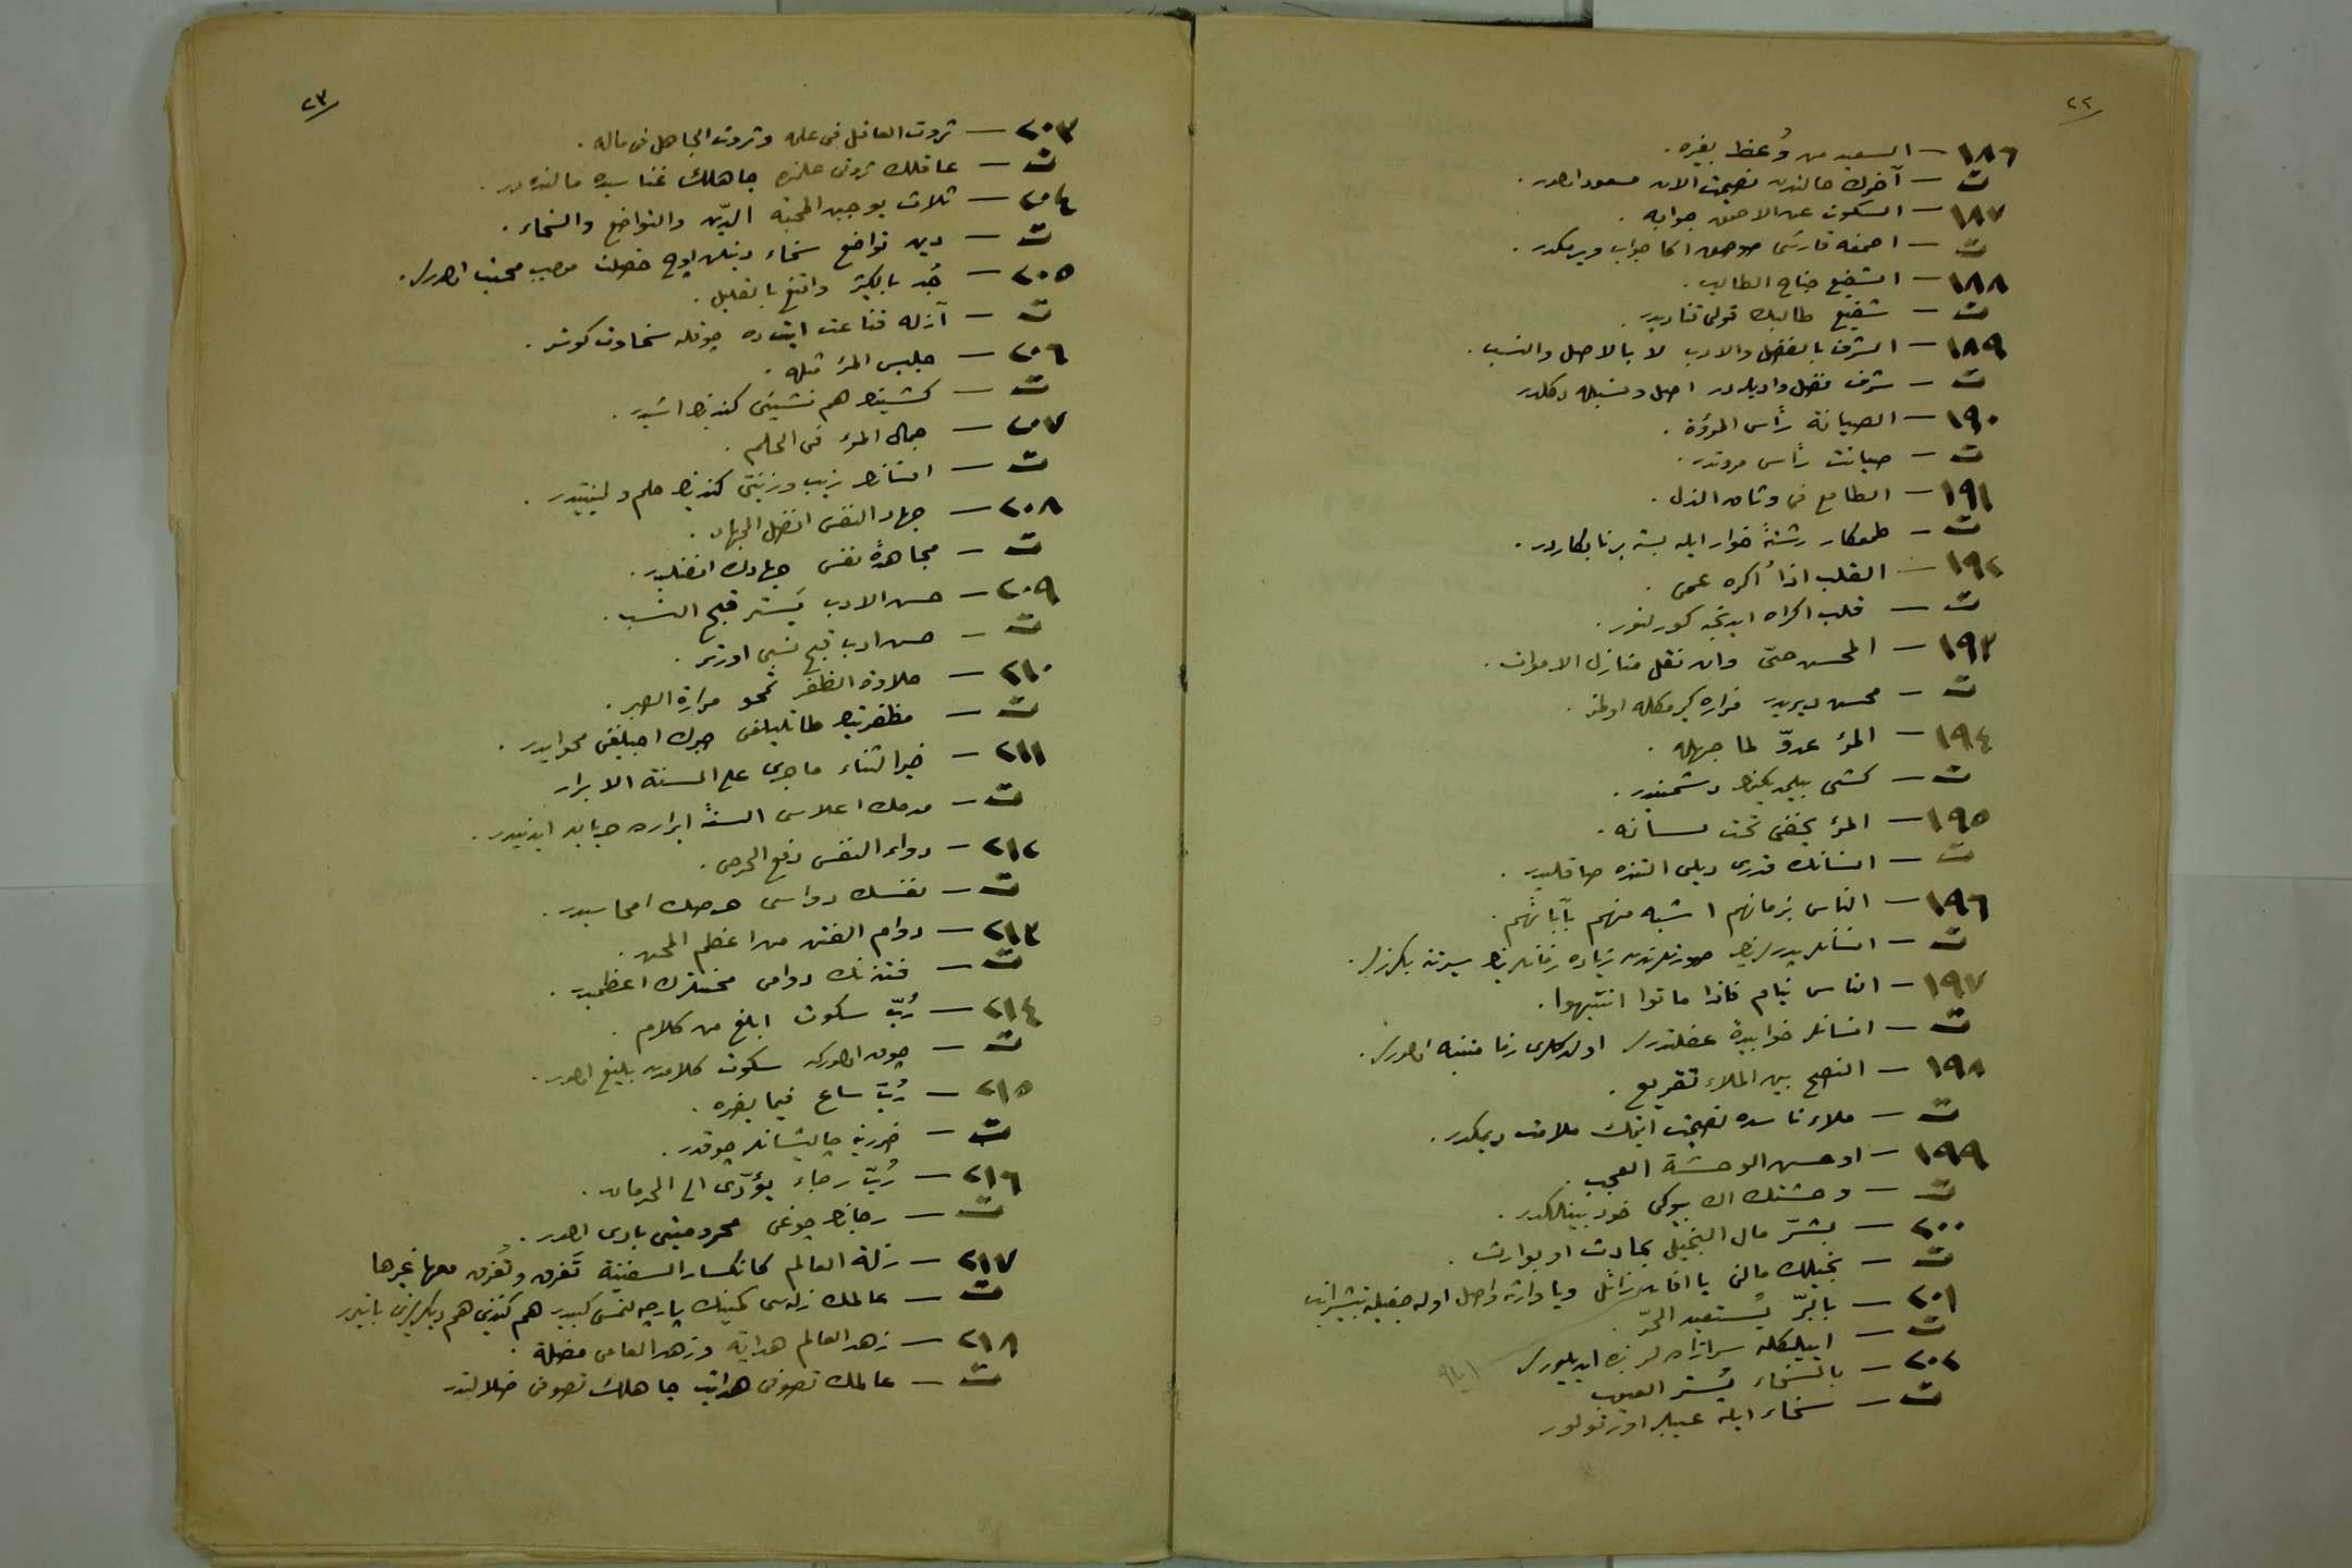 ٢٢
١٨٦ — السعيد من وُعظ بغيره .
ت — آخرك حالندن نصيحت آلان مسعود اولور .
١٨٧ — السكوت عن الاحمق جوابه .
ت — احمقه قارشى صوصمق اكا جواب ويرمكدر .
١٨٨ — الشفيع جناح الطالب .
ت — شفيع طالبك قولى قناديدر .
١٨٩ — الشرف بالفضل والادب لا بالاصل والنسب .
ت — شرف فضل وادبله در اصل ونسبله دكلدر
١٩٠ — الصيانة رأس المروّة .
ت — صيانت رأس مروتدر .
١٩١ — الطامع فى وثاق الذل .
ت — طمعكار رشتهٔ خوار ايله بسته بر نابكاردر .
١٩٢ — القلب اذا اُكره عمى .
ت — قلب اكراه ايدنجه كورلنور .
١٩٣ — المحسن حىّ وان نقل منازل الاموات .
ت — محسن ديريدر مزاره كيرمكله اولمز .
١٩٤ — المرء عدوّ لما جهله .
ت — كشى بيلمديكنك دشمنيدر .
١٩٥ — المرء يخفى تحت لسانه .
ت — انسانك قدرى ديلى التنده صاقليدر .
١٩٦ — الناس بزمانهم اشبه منهم بآبائهم .
ت — انسانلر پدرلرينك صورتلرندن زياده زمانلرينك سيرتنه بكزرلر .
١٩٧ — الناس نيام فاذا ماتوا انتبهوا .
ت — انسانلر خوابيدهٔ غفلتدرلر اولدكلرى زمان متنبه اولورلر .
١٩٨ — النصح بين الملاء تقريع .
ت — ملاء ناسده نصيحت ايتمك ملامت ديمكدر .
١٩٩ — اوحش الوحشة العجب .
ت — وحشتك اك بيوكى خود بينلكدر .
٢٠٠ — بشّر مال البخيل بحادث او بوارث .
ت — بخيلك مالنى يا آفاتله زائل ويا وارثه واصل اوله جغيله تبشير ايت
٢٠١ — بالبرّ يُستعبد الحرّ .
ت — ايليكله سرآزاده لر بنده ايديليورلر
٢٠٢ — بالسخاء يُستر العيوب
ت — سخاء ايله عيبلر اورتولور
٢٣
٢٠٣ — ثروت العاقل فى علمه وثروت الجاهل فى ماله .
ت — عاقلك ثروتى علمنده جاهلك غناسيده مالنده در .
٢٠٤ — ثلاث يوجبن المحبته الدّين والتواضع والسخاء .
ت — دين تواضع سخاء دينلن اوچ خصلت موجب محبت اولورلر .
٢٠٥ — جُد بالكثير واقنع بالقليل .
ت — آزله قناعت ايت ده چوقله سخاوت كوستر .
٢٠٦ — جليس المرء مثله .
ت — كشينك هم نشينى كندينك اشيدر .
٢٠٧ — جمال المرء فى الحلم .
ت — انسانك زيب وزينتى كندينك حلم ولينتيدر .
٢٠٨ — جهاد النفس افضل الجهاد .
ت — مجاهدهٔ نفس جهادك افضليدر .
٢٠٩ — حسن الادب يَستر قبح النسب .
ت — حسن ادب قبح نسبى اورتر .
٢١٠ — حلاوة الظفر تمحو مرارة الصبر .
ت — مظفريتك طاتليلغى صبرك اجيلغنى محو ايدر .
٢١١ — خير الثناء ماجرى على السنة الابرار
ت — مدحك اعلاسى السنهٔ ابرارده جريان ايدنيدر .
٢١٢ — دواء النفس دفع الحرص .
ت — نفسك دواسى حرصك امحاسيدر .
٢١٣ — دوام الفتن من اعظم المحن .
ت — فتنه نك دوامى محنتلرك اعظميدر .
٢١٤ — رُبّ سكوت ابلغ من كلام .
ت — چوق اولوركه سكوت كلامدن بليغ اولور .
٢١٥ — رُبّ ساع فيما يضره .
ت — ضررينه چاليشانلر چوقدر .
٢١٦ — رُبّ رجاء يؤدّى الى الحرمان .
ت — رجانك چوغى محروميتى بادى اولور .
٢١٧ — زلة العالم كانكسار السفينة تَغرق وتُغرق معها غيرها
ت — عالمك زله سى كمينك پارچه لنمسى كبيدر هم كندينى هم ديكرلرينى باتيرر
٢١٨ — زهد العالم هداية وزهد العامى مضلة .
ت — عالمك تصوفى هدايت جاهلك تصوفى ضلالتدر